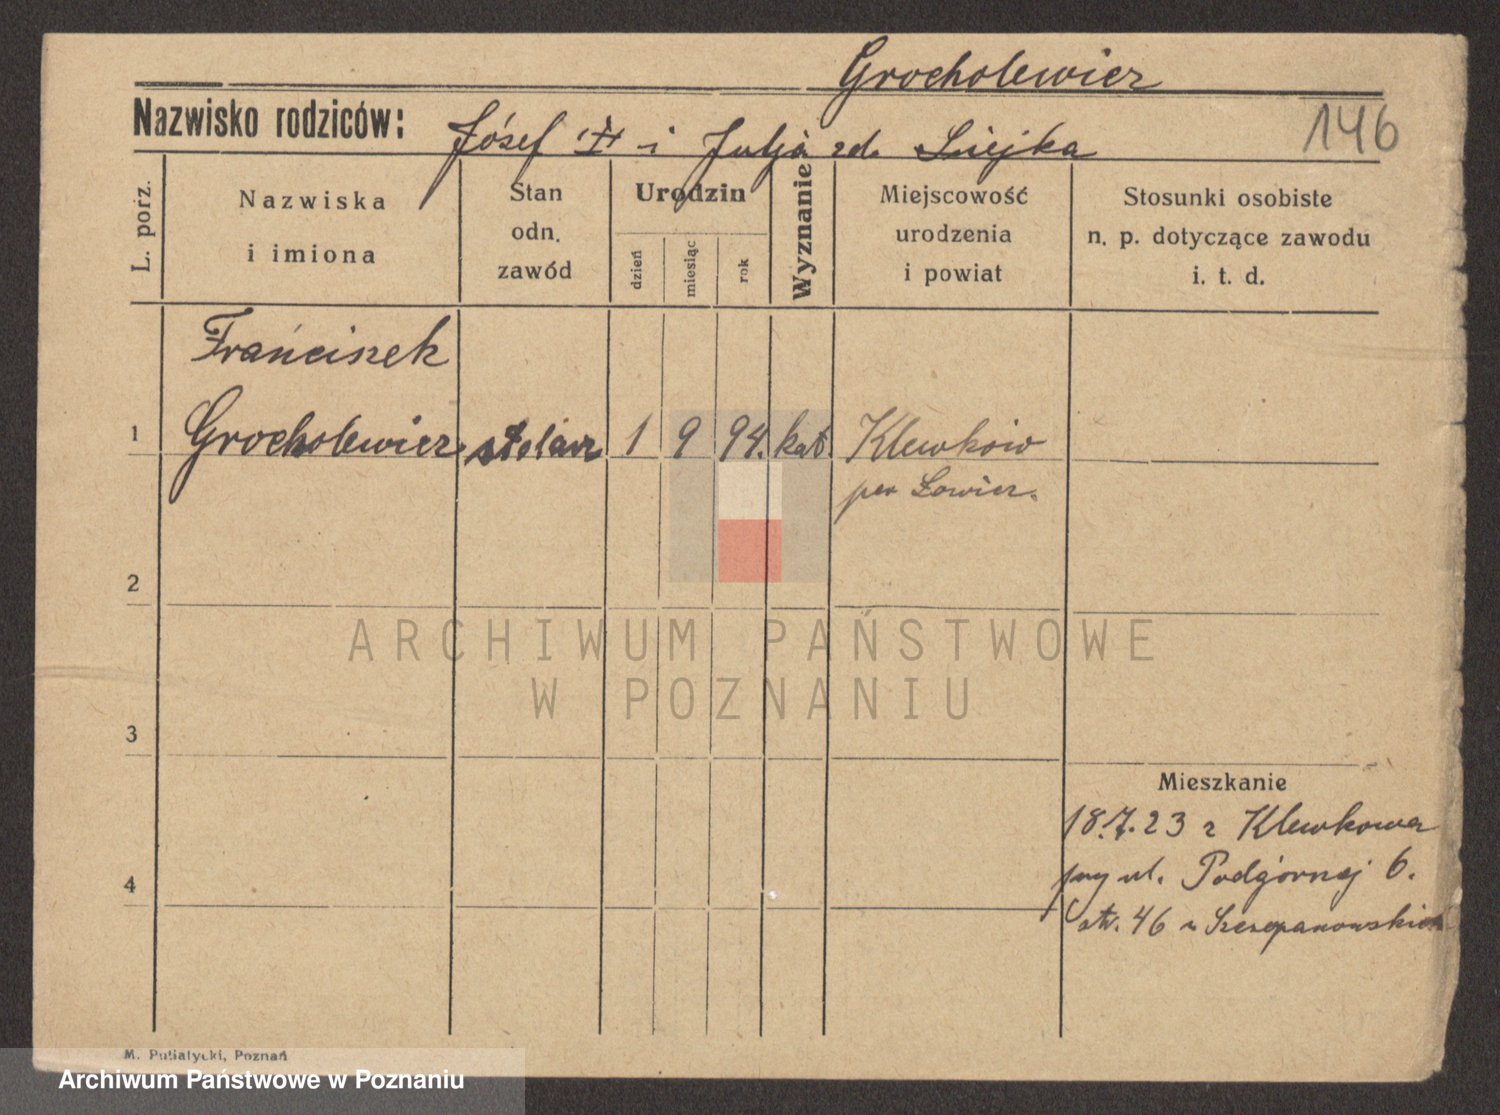 Grocholewicz
Nazwisko rodziców: Józef i Julja zd.
146
L. porz.
Nazwiska
i imiona
Stan
odn.
zawód
Urodzin
dzień
miesiąc
rok
Wyznanie
Miejscowość
urodzenia
i powiat
Stosunki osobiste
n. p. dotyczące zawodu
i. t. d.
Franciszek
1 Grocholewicz stolarz 1 9 94. kat. Klewków
pow Łowicz.
2
3
4
ARCHIWUM PAŃSTWOWE
W POZNANIU
Mieszkanie
18.7.23 z Klewkowa
przy ul. Podgórnej 6.
46 u Szczepanowskich
M. Putiatycki, Poznań
Archiwum Państwowe w Poznaniu